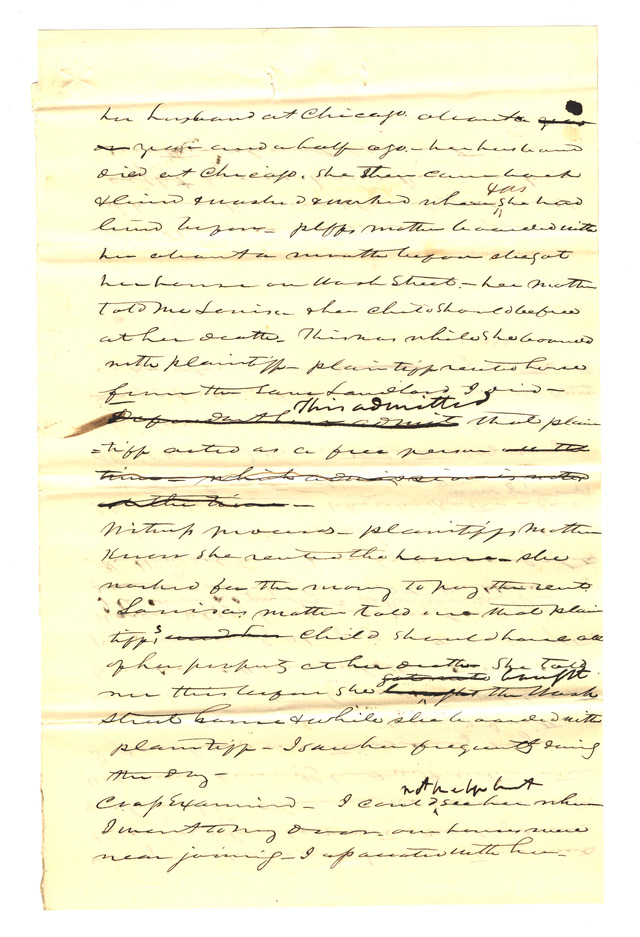 her husband at Chicago. about a year
a year and a half ago - her husband
died at Chicago. She then came back
& lived & washed & worked where & as she had
lived before - plffs mother boarded with
her about a month before she got
her house on Wash Street. - her mother
told me Louisa & her child should be free
at her death. This was while she boarded
with plaintiff - plaintiff rented house
from the same Landlord I did -
Defendant here admits This admitted that plain
=tiff acted as a free person
time - which admission is noted
at the time -
Witness proceeds - plaintiffs Mother
Knew she rented the house - she
worked for the money to pay the rent
Louisas mother told me that plain
tiffs, and her child should have all
of her property at her death. She told
me this before she bought got into bought the Wash
Street house & while she boarded with
plaintiff - I saw her frequently during
the day -
Cross Examined - I could not help but see her when
I went to my door our houses were
near joining - I associated with her -